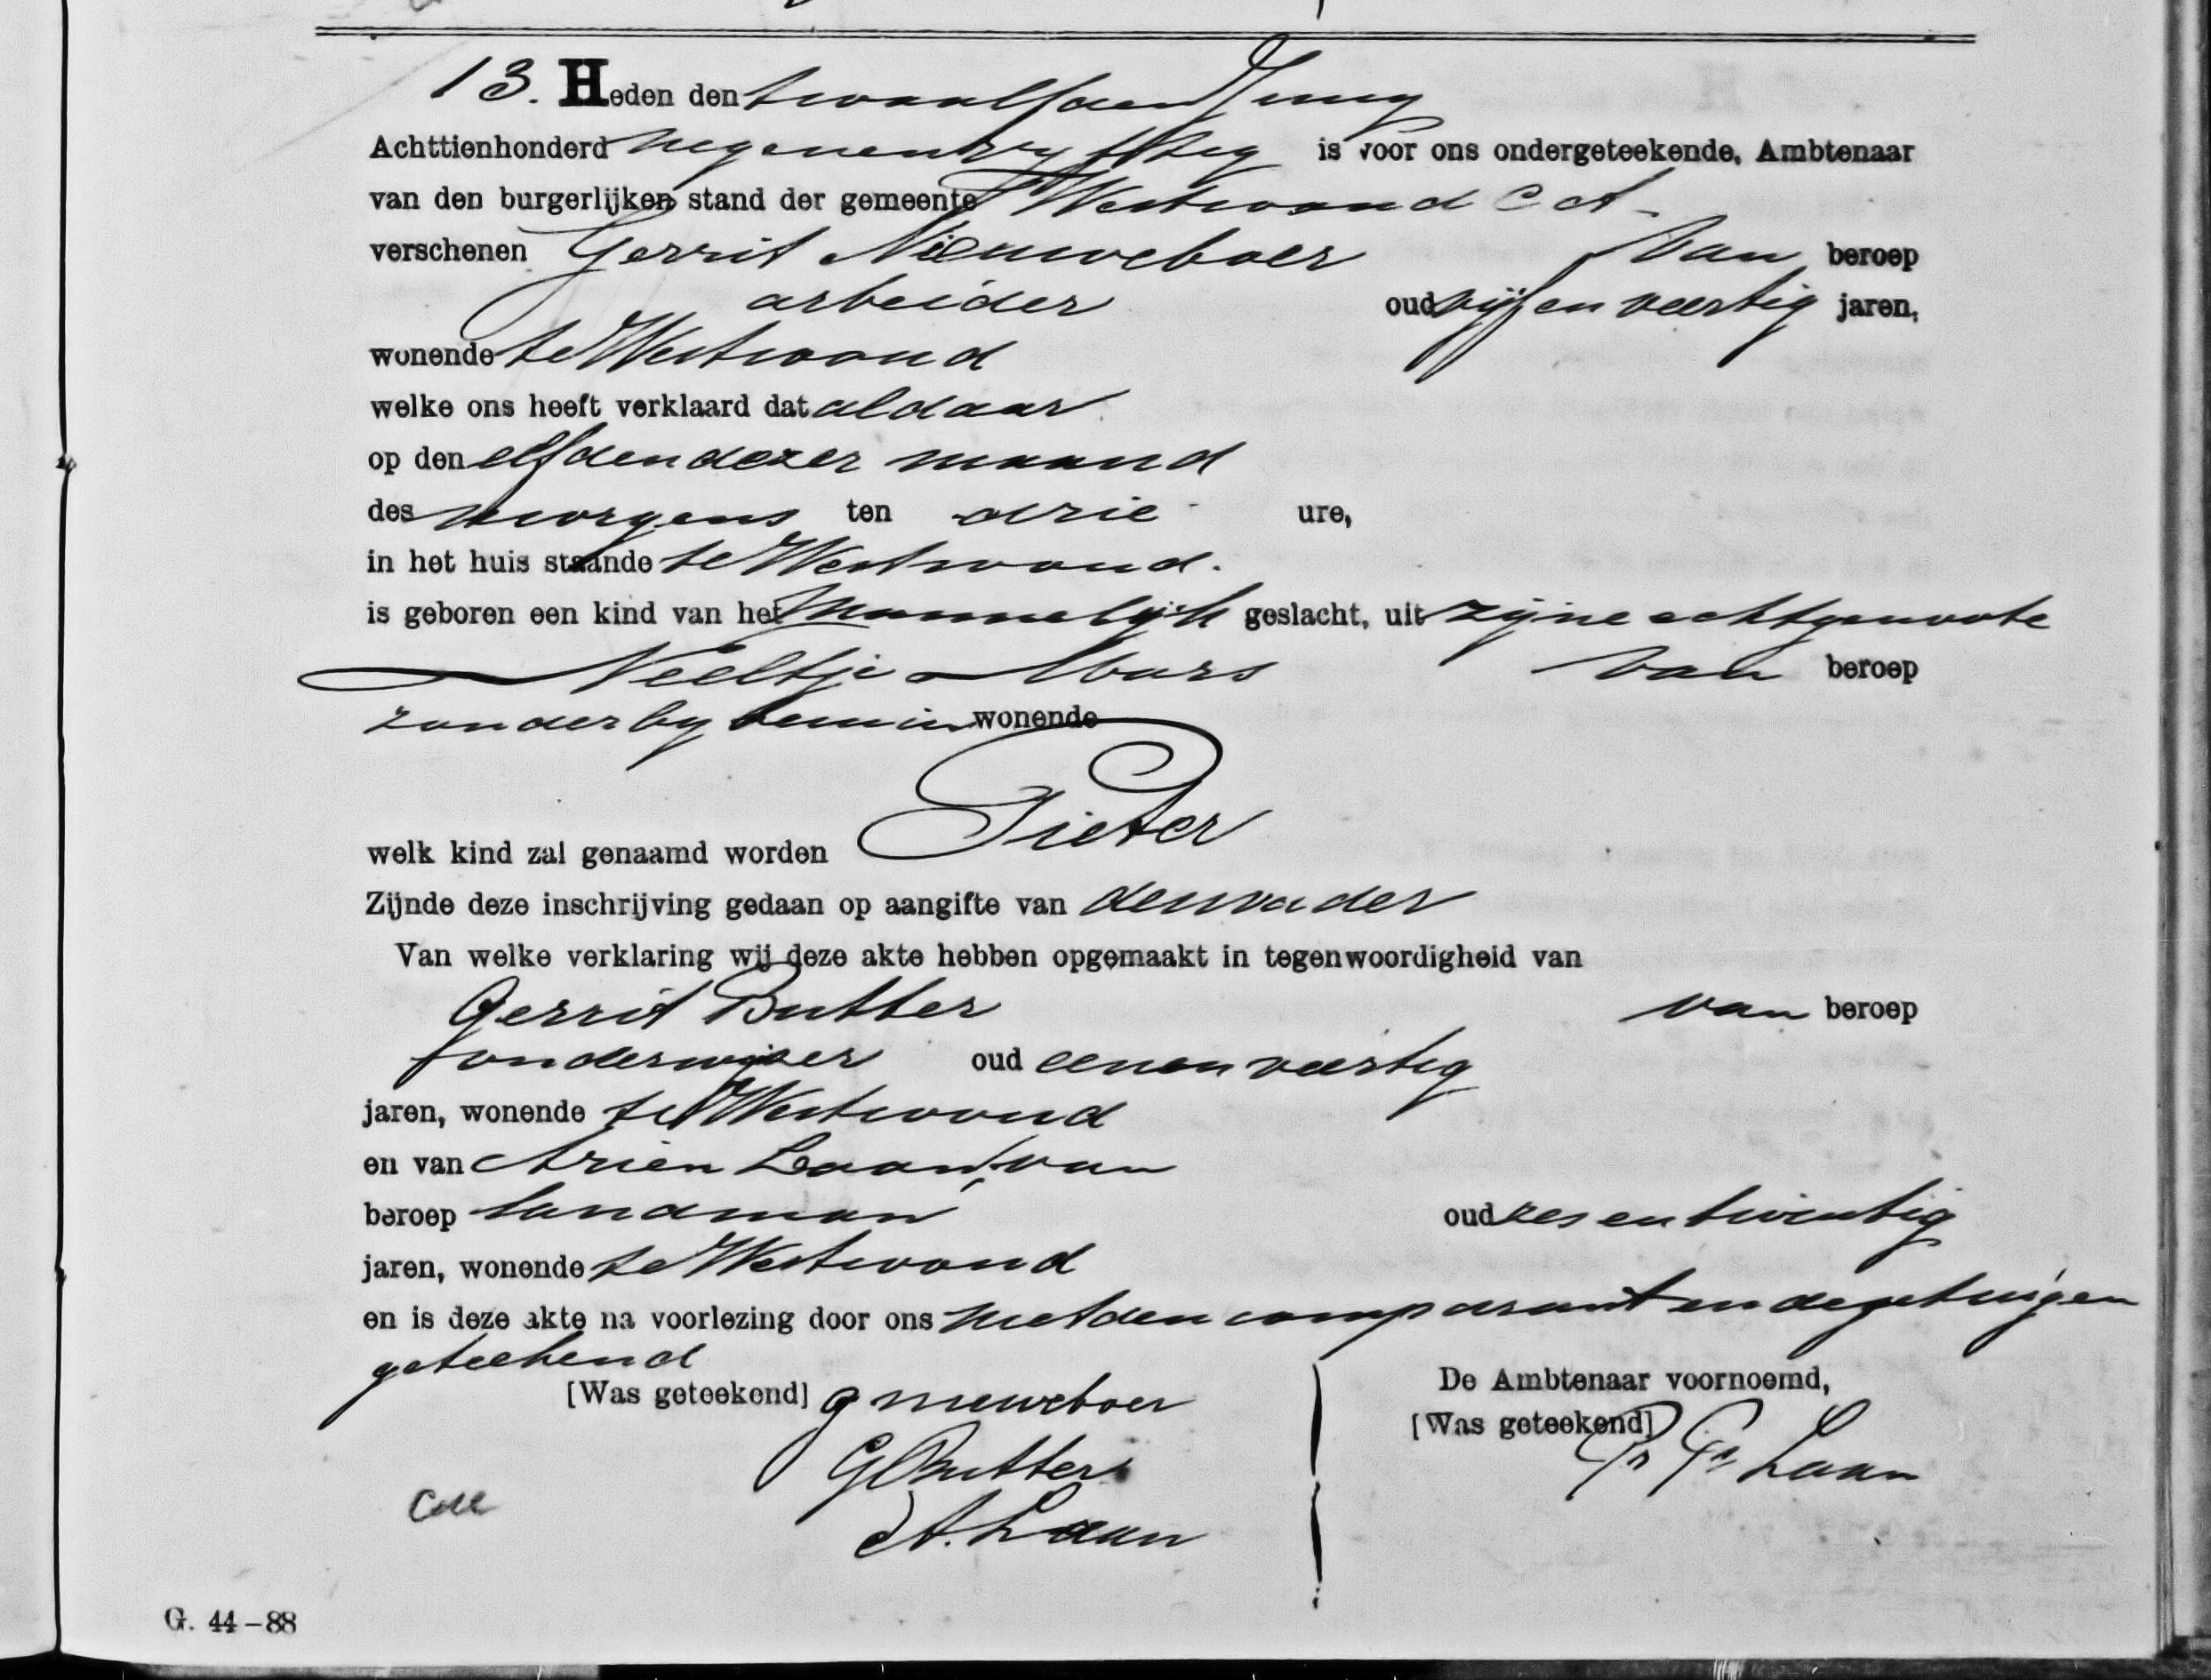 13. Heden den twaalfden Juny
Achttienhonderd negenentagtig is voor ons ondergeteekende, Ambtenaar
van den burgerlijken stand der gemeente Westwoud C A
verschenen Gerrit Nieuweboer van beroep
arbeider oud vijf en veertig jaren,
wonende te Westwoud
welke ons heeft verklaard dat aldaar
op den elfden dezer maand
des morgens ten drie ure,
in het huis staande te Westwoud.
is geboren een kind van het mannelijk geslacht, uit zijne echtgenoote
Neeltje Mars van beroep
zonder by hem in wonende
Pieter
welk kind zal genaamd worden
Zijnde deze inschrijving gedaan op aangifte van den vader
Van welke verklaring wij deze akte hebben opgemaakt in tegenwoordigheid van
Gerrit Butter van beroep
onderwijzer oud eenen veertig
jaren, wonende te Westwoud
en van Arien Laan, van
beroep landman oud zes en twintig
jaren, wonende te Westwoud
en is deze akte na voorlezing door ons met den comparant en de getuigen
geteekend
[Was geteekend] g nieuweboer De Ambtenaar voornoemd,
[Was geteekend] Laan
G Butter
A. Laan
G. 44-88